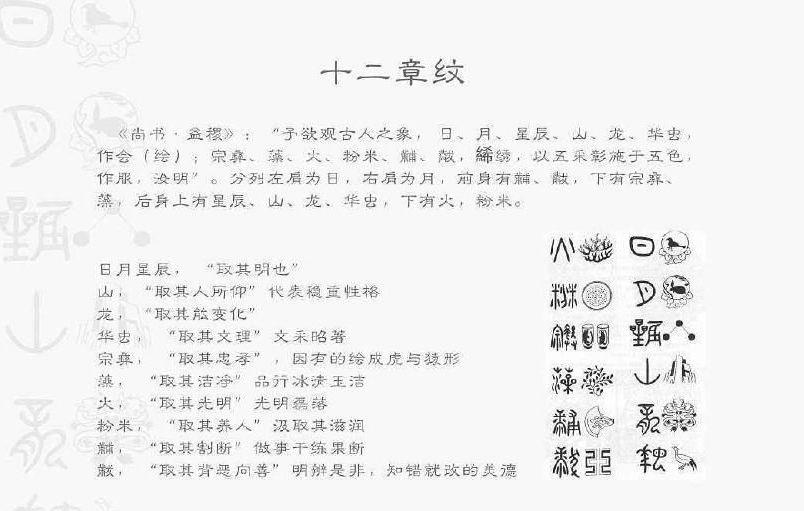 十二章纹
《尚书·益稷》："予欲观古人之象，日、月、星辰、山、龙、华虫，
作会（绘）；宗彝、藻、火、粉米、黼、黻，絺绣，以五采彰施于五色，
作服，汝明"。分列左肩为日，右肩为月，前身有黼、黻，下有宗彝、
藻，后身上有星辰、山、龙、华虫，下有火，粉米。
日月星辰，"取其明也"
山，"取其人所仰"代表稳重性格
龙，"取其能变化"
华虫，"取其文理"文采昭著
宗彝，"取其忠孝"，因有的绘成虎与猿形
藻，"取其洁净"品行冰清玉洁
火，"取其光明"光明磊落
粉米，"取其养人"汲取其滋润
黼，"取其割断"做事干练果断
黻，"取其背恶向善"明辨是非，知错就改的美德